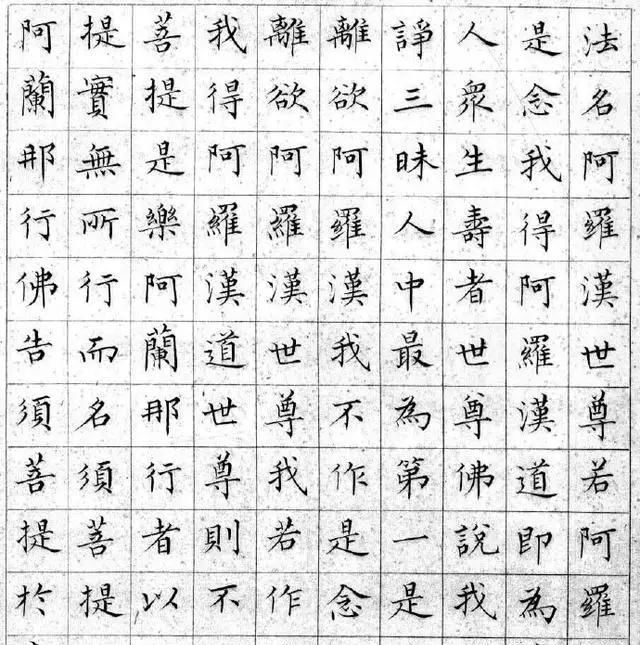 法名阿羅漢世尊若阿羅
是念我得阿羅漢道即為
人眾生壽者世尊佛說我
諍三昧人中最為第一是
離欲阿羅漢我不作是念
離欲阿羅漢世尊我若作
我得阿羅漢道世尊則不
菩提是樂阿蘭那行者以
提實無所行而名須菩提
阿蘭那行佛告須菩提於